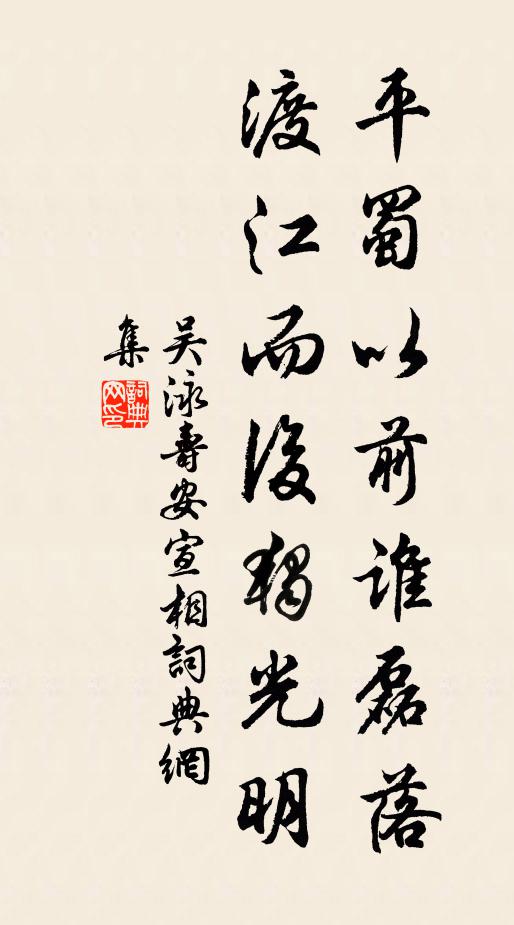 平蜀以前谁磊落
渡江而后独光明
吴泳寿安宣相詞典網
集
詞典
网印